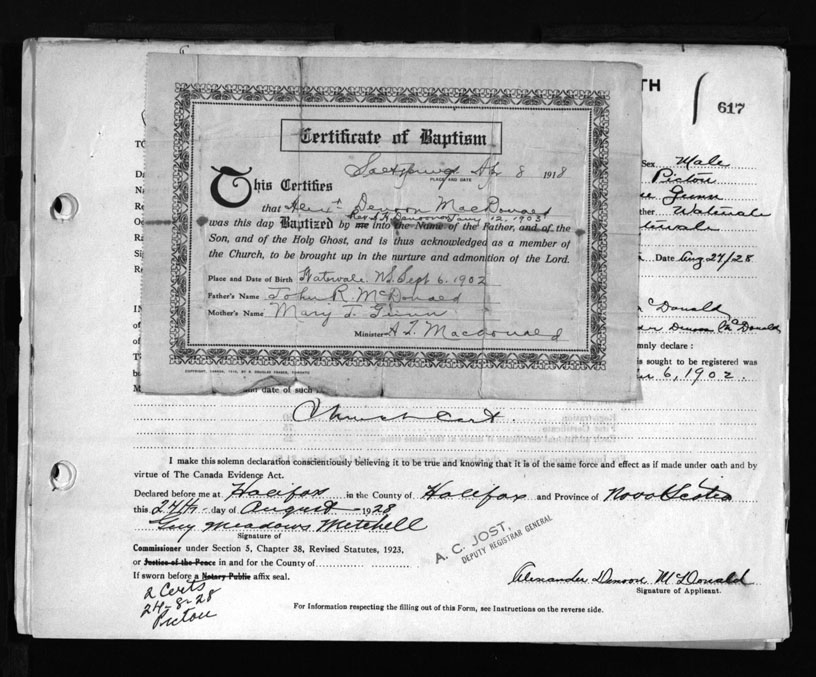 TH
617
Certificate of Baptism
Saltsprings Ap 8 1918
PLACE AND DATE
This Certifies
that Alexr Denoon MacDonald
Rev. A. Denoon on Jany 12, 1903
was this day Baptized by me into the Name of the Father, and of the
Son, and of the Holy Ghost, and is thus acknowledged as a member of
the Church, to be brought up in the nurture and admonition of the Lord.
Place and Date of Birth Watervale N.S. Sept 6. 1902
Father's Name John R. McDonald
Mother's Name Mary J. Gunn
Minister A. L. Macdonald
COPYRIGHT, CANADA
Sex Male
Pictou
Gunn
ther Watervale
Date Aug 27/28
McDonald
Denoon McDonald
mnly declare :
is sought to be registered was
6, 1902.
and date of such
Church Cert.
I make this solemn declaration conscientiously believing it to be true and knowing that it is of the same force and effect as if made under oath and by
virtue of The Canada Evidence Act.
Declared before me at Halifax in the County of Halifax and Province of Nova Scotia
this 24th day of August 1928
Guy Meadows Mitchell
Signature of
A. C. JOST,
DEPUTY REGISTRAR GENERAL
Commissioner under Section 5, Chapter 38, Revised Statutes, 1923,
or Justice of the Peace in and for the County of
If sworn before a Notary Public affix seal.
Alexander Denoon McDonald
Signature of Applicant.
2 Certs
24-8-28
Pictou
For Information respecting the filling out of this Form, see Instructions on the reverse side.